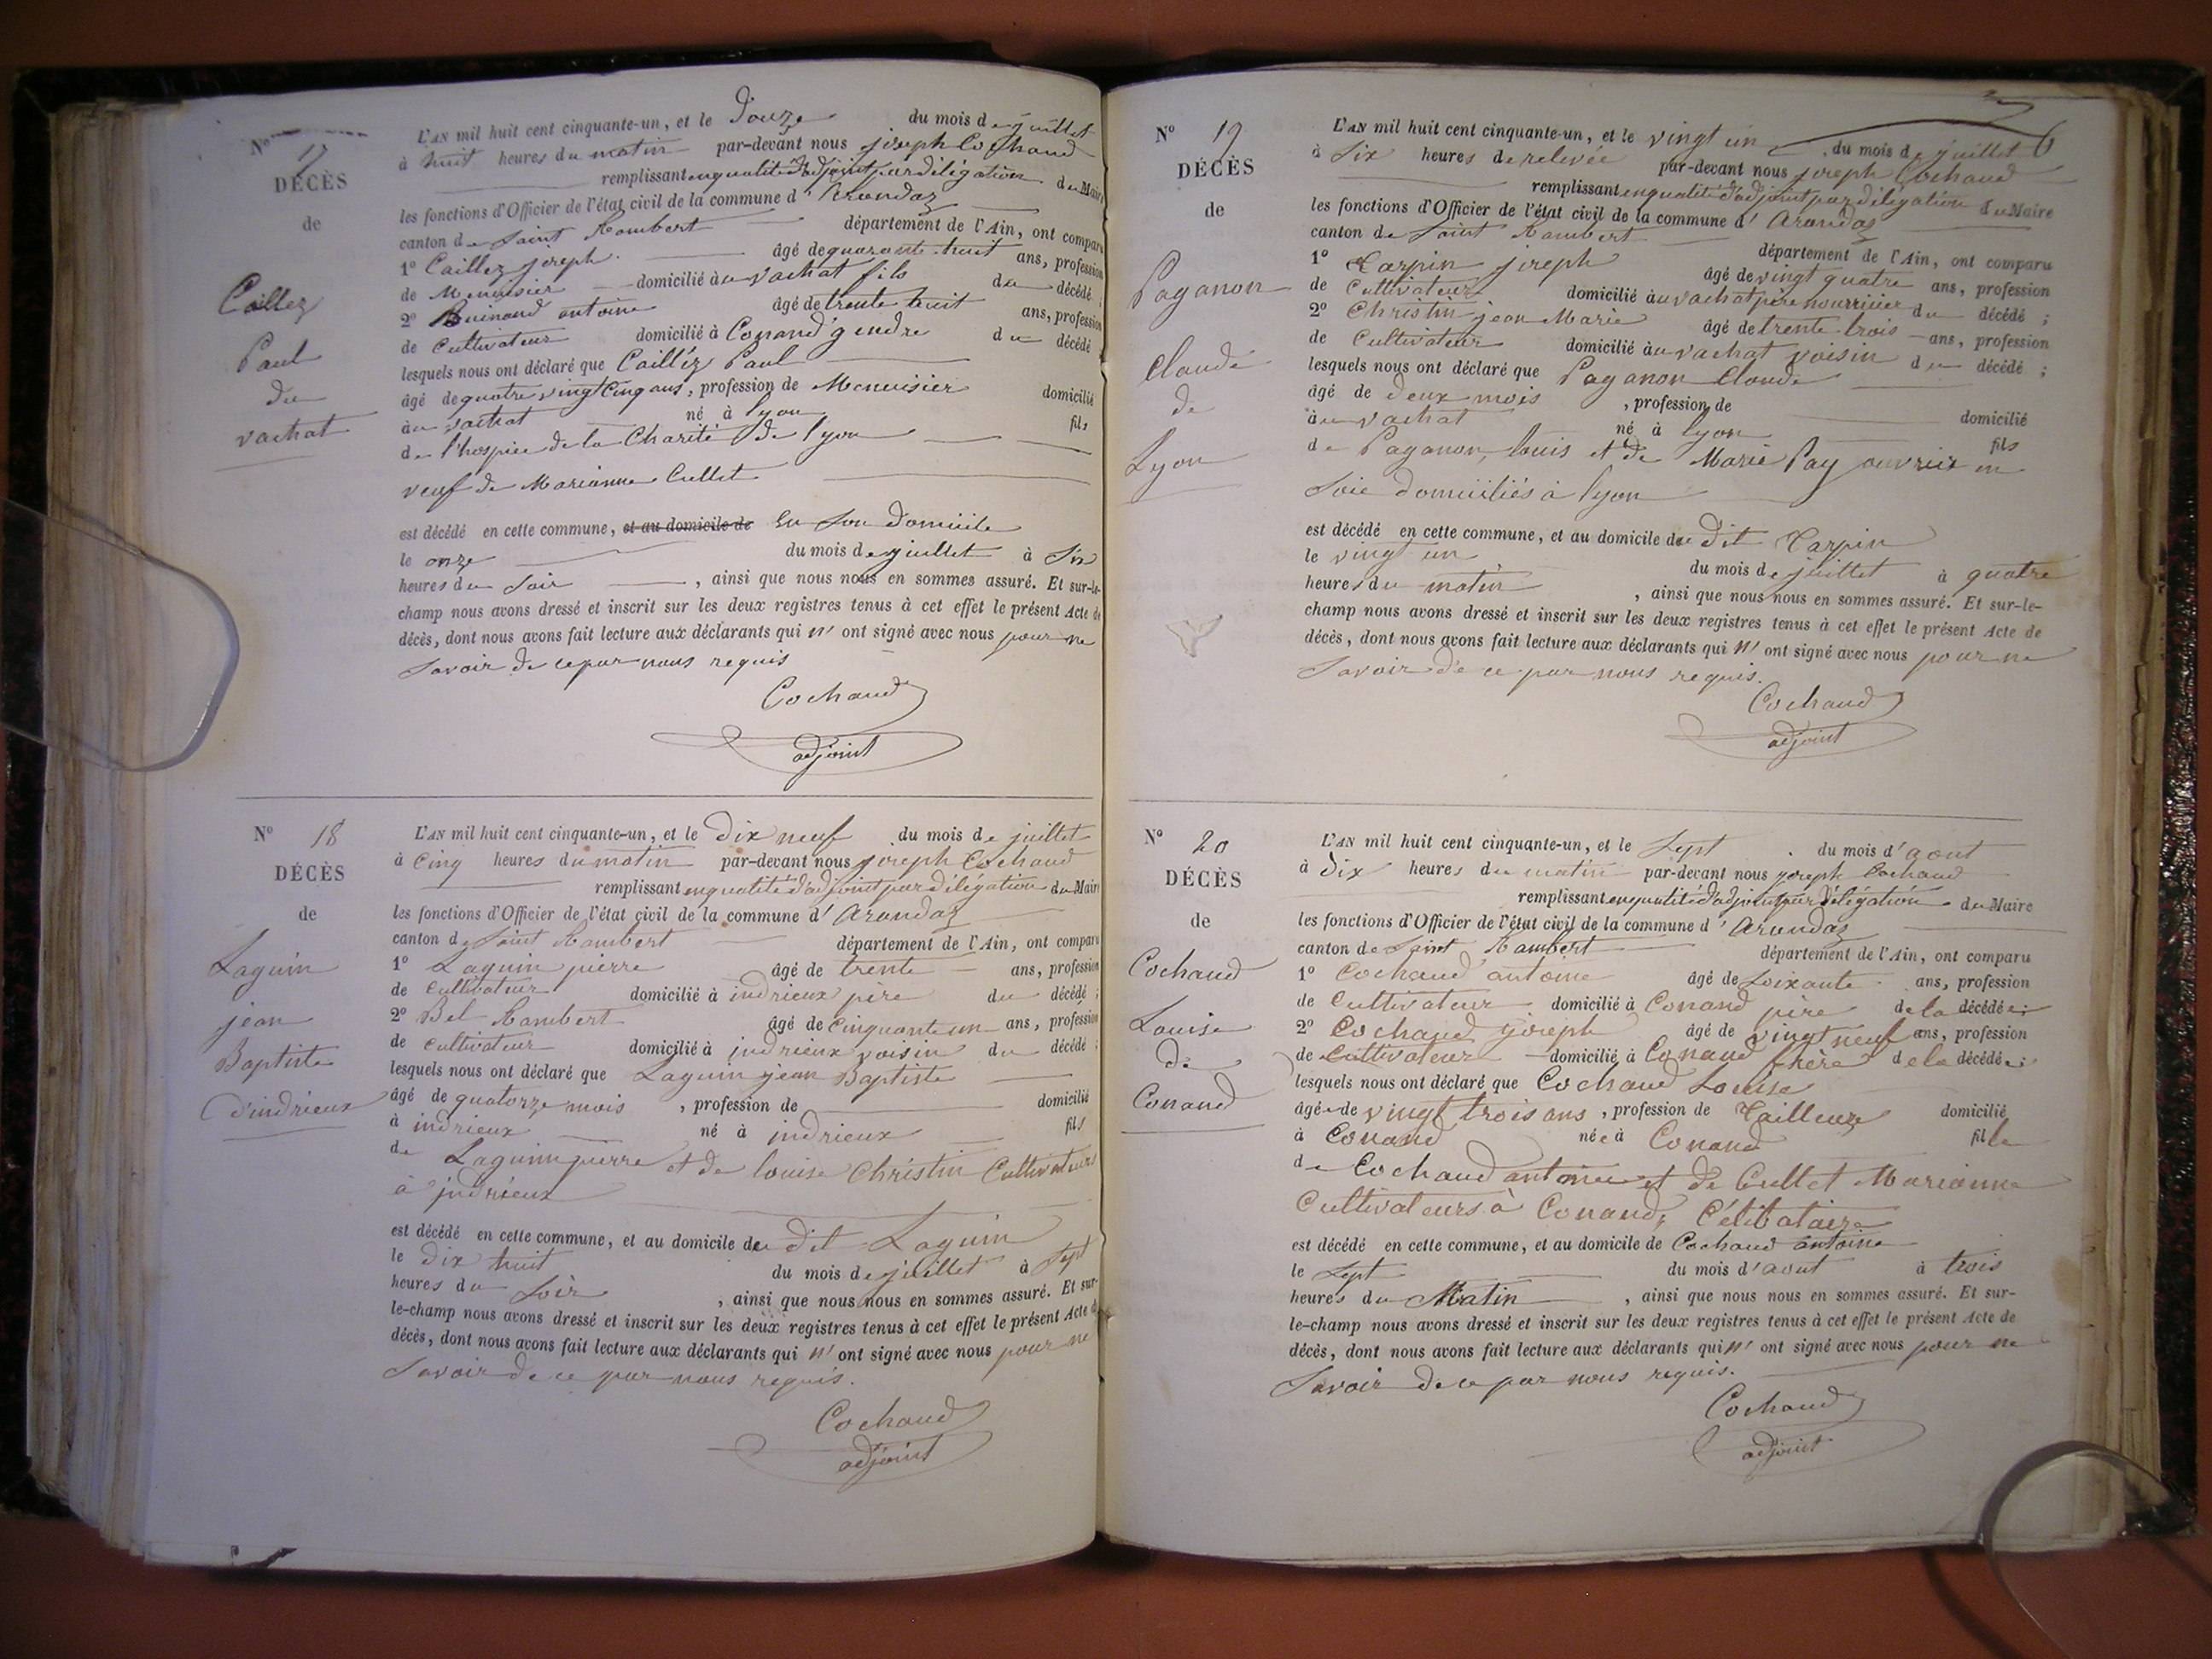 N° 17
DÉCÈS
de
Caillez
Paul
du
vachat
L'AN mil huit cent cinquante-un, et le Douze du mois de juillet
à huit heures du matin par-devant nous joseph Cochaud
remplissant en qualité d'adjoint par délégation du Maire
les fonctions d'Officier de l'état civil de la commune d'Arandaz
canton de Saint Rambert département de l'Ain, ont comparu
1° Caillez joseph âgé de quarante huit ans, profession
de Menuisier domicilié au vachat fils du décédé;
2° antoine âgé de trente huit ans, profession
de Cultivateur domicilié à Conand gendre du décédé
lesquels nous ont déclaré que Caillez Paul
âgé de quatre vingt Cinq ans, profession de Menuisier domicilié
au vachat né à lyon fils
de l'hospice de la Charité de lyon
veuf de Marianne Cullet
est décédé en cette commune, et au domicile de En Son domicile
le onze du mois de juillet à Six
heures du Soir, ainsi que nous nous en sommes assuré. Et sur-le-
champ nous avons dressé et inscrit sur les deux registres tenus à cet effet le présent Acte de
décès, dont nous avons fait lecture aux déclarants qui n' ont signé avec nous pour ne
Savoir de ce par nous requis
Cochaud
adjoint
N° 18
DÉCÈS
de
Laguin
jean
Baptiste
d'indrieux
L'AN mil huit cent cinquante-un, et le Dix neuf du mois de juillet
à Cinq heures du matin par-devant nous joseph Cochaud
remplissant en qualité d'adjoint par délégation du Maire
les fonctions d'Officier de l'état civil de la commune d'Arandaz
canton de Saint Rambert département de l'Ain, ont comparu
1° Laguin pierre âgé de trente ans, profession
de Cultivateur domicilié à indrieux père du décédé;
2° Bel Rambert âgé de Cinquante un ans, profession
de cultivateur domicilié à indrieux voisin du décédé;
lesquels nous ont déclaré que Laguin jean Baptiste
âgé de quatorze mois, profession de domicilié
à indrieux né à indrieux fils
de Laguin pierre et de louise Christin Cultivateurs
à indrieux
est décédé en cette commune, et au domicile du dit Laguin
le Dix huit du mois de juillet à Sept
heures du Soir, ainsi que nous nous en sommes assuré. Et sur-
le-champ nous avons dressé et inscrit sur les deux registres tenus à cet effet le présent Acte de
décès, dont nous avons fait lecture aux déclarants qui n' ont signé avec nous pour ne
Savoir de ce par nous requis.
Cochaud
adjoint
N° 19
DÉCÈS
de
Paganon
Claude
de
Lyon
L'AN mil huit cent cinquante-un, et le vingt un du mois de juillet
à Six heures de relevée par-devant nous joseph Cochaud
remplissant en qualité d'adjoint par délégation du Maire
les fonctions d'Officier de l'état civil de la commune d'Arandaz
canton de Saint Rambert département de l'Ain, ont comparu
1° Carpin joseph âgé de vingt quatre ans, profession
de Cultivateur domicilié au vachat père nourricier du décédé;
2° Christin jean Marie âgé de trente trois ans, profession
de Cultivateur domicilié au vachat voisin du décédé;
lesquels nous ont déclaré que Paganon Claude
âgé de deux mois, profession de domicilié
au vachat né à lyon fils
de Paganon louis et de Marie Pay ouvrier en
Soie domiciliés à lyon
est décédé en cette commune, et au domicile du dit Carpin
le vingt un du mois de juillet à quatre
heures du matin, ainsi que nous nous en sommes assuré. Et sur-le-
champ nous avons dressé et inscrit sur les deux registres tenus à cet effet le présent Acte de
décès, dont nous avons fait lecture aux déclarants qui n' ont signé avec nous pour ne
Savoir de ce par nous requis.
Cochaud
adjoint
N° 20
DÉCÈS
de
Cochaud
Louise
de
Conand
L'AN mil huit cent cinquante-un, et le Sept du mois d'aout
à Dix heures du matin par-devant nous joseph Cochaud
remplissant en qualité d'adjoint par délégation du Maire
les fonctions d'Officier de l'état civil de la commune d'Arandaz
canton de Saint Rambert département de l'Ain, ont comparu
1° Cochaud antoine âgé de Soixante ans, profession
de Cultivateur domicilié à Conand père de la décédée;
2° Cochaud joseph âgé de vingt neuf ans, profession
de Cultivateur domicilié à Conand frère de la décédée;
lesquels nous ont déclaré que Cochaud Louise
âgée de vingt trois ans, profession de Tailleuse domicilié
à Conand née à Conand fille
de Cochaud antoine et de Cullet Marianne
Cultivateurs à Conand, Célibataire
est décédé en cette commune, et au domicile de Cochaud antoine
le Sept du mois d'aout à trois
heures du Matin, ainsi que nous nous en sommes assuré. Et sur-
le-champ nous avons dressé et inscrit sur les deux registres tenus à cet effet le présent Acte de
décès, dont nous avons fait lecture aux déclarants qui n' ont signé avec nous pour ne
Savoir de ce par nous requis.
Cochaud
adjoint